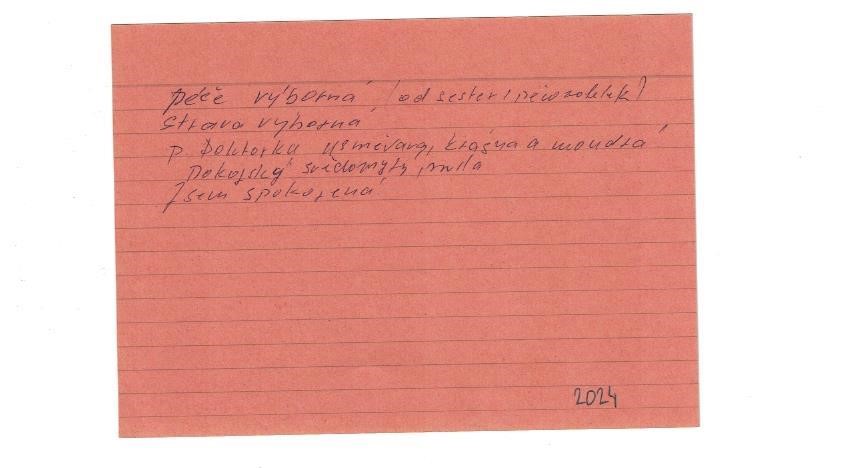 péče výborná (od sester i pečovatelek)
Strava výborná
p Doktorka usměvavá, krásná a moudrá
Pokojský svědomitý, milá
Jsem spokojená
2024